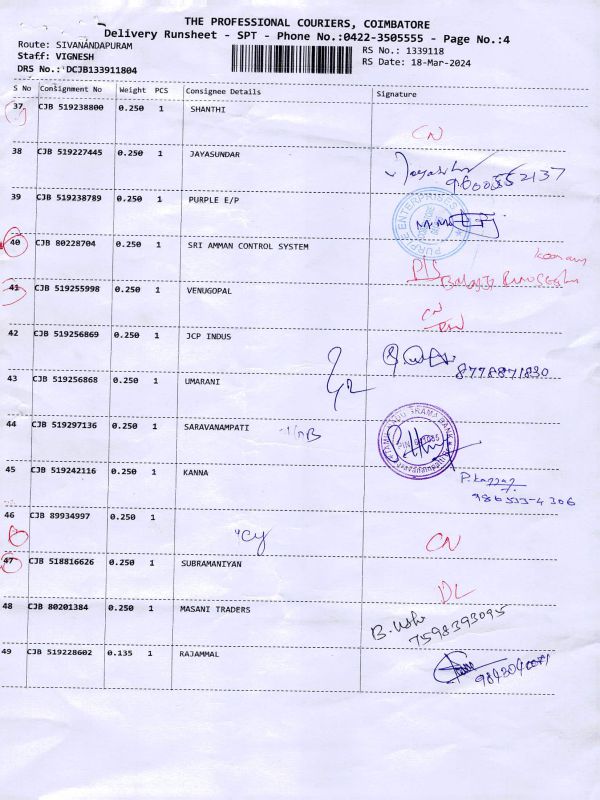 THE PROFESSIONAL COURIERS, COIMBATORE
Delivery Runsheet - SPT - Phone No.:0422-3505555 - Page No.:4
Route: SIVANANDAPURAM
RS No.: 1339118
Staff: VIGNESH
RS Date: 18-Mar-2024
DRS No.: DCJB133911804
S No Consignment No Weight PCS Consignee Details Signature
37 CJB 519238800 0.250 1 SHANTHI
CN
38 CJB 519227445 0.250 1 JAYASUNDAR
39 CJB 519238789 0.250 1 PURPLE E/P
PURPLE ENTERPRISES
40 CJB 80228704 0.250 1 SRI AMMAN CONTROL SYSTEM
41 CJB 519255998 0.250 1 VENUGOPAL
CN
42 CJB 519256869 0.250 1 JCP INDUS
8778871830
43 CJB 519256868 0.250 1 UMARANI
44 CJB 519297136 0.250 1 SARAVANAMPATI
TAMILNADU GRAMA BANK
45 CJB 519242116 0.250 1 KANNA
46 CJB 89934997 0.250 1
CN
47 CJB 518816626 0.250 1 SUBRAMANIYAN
DL
48 CJB 80201384 0.250 1 MASANI TRADERS
B. Usha
7598393095
49 CJB 519228602 0.135 1 RAJAMMAL